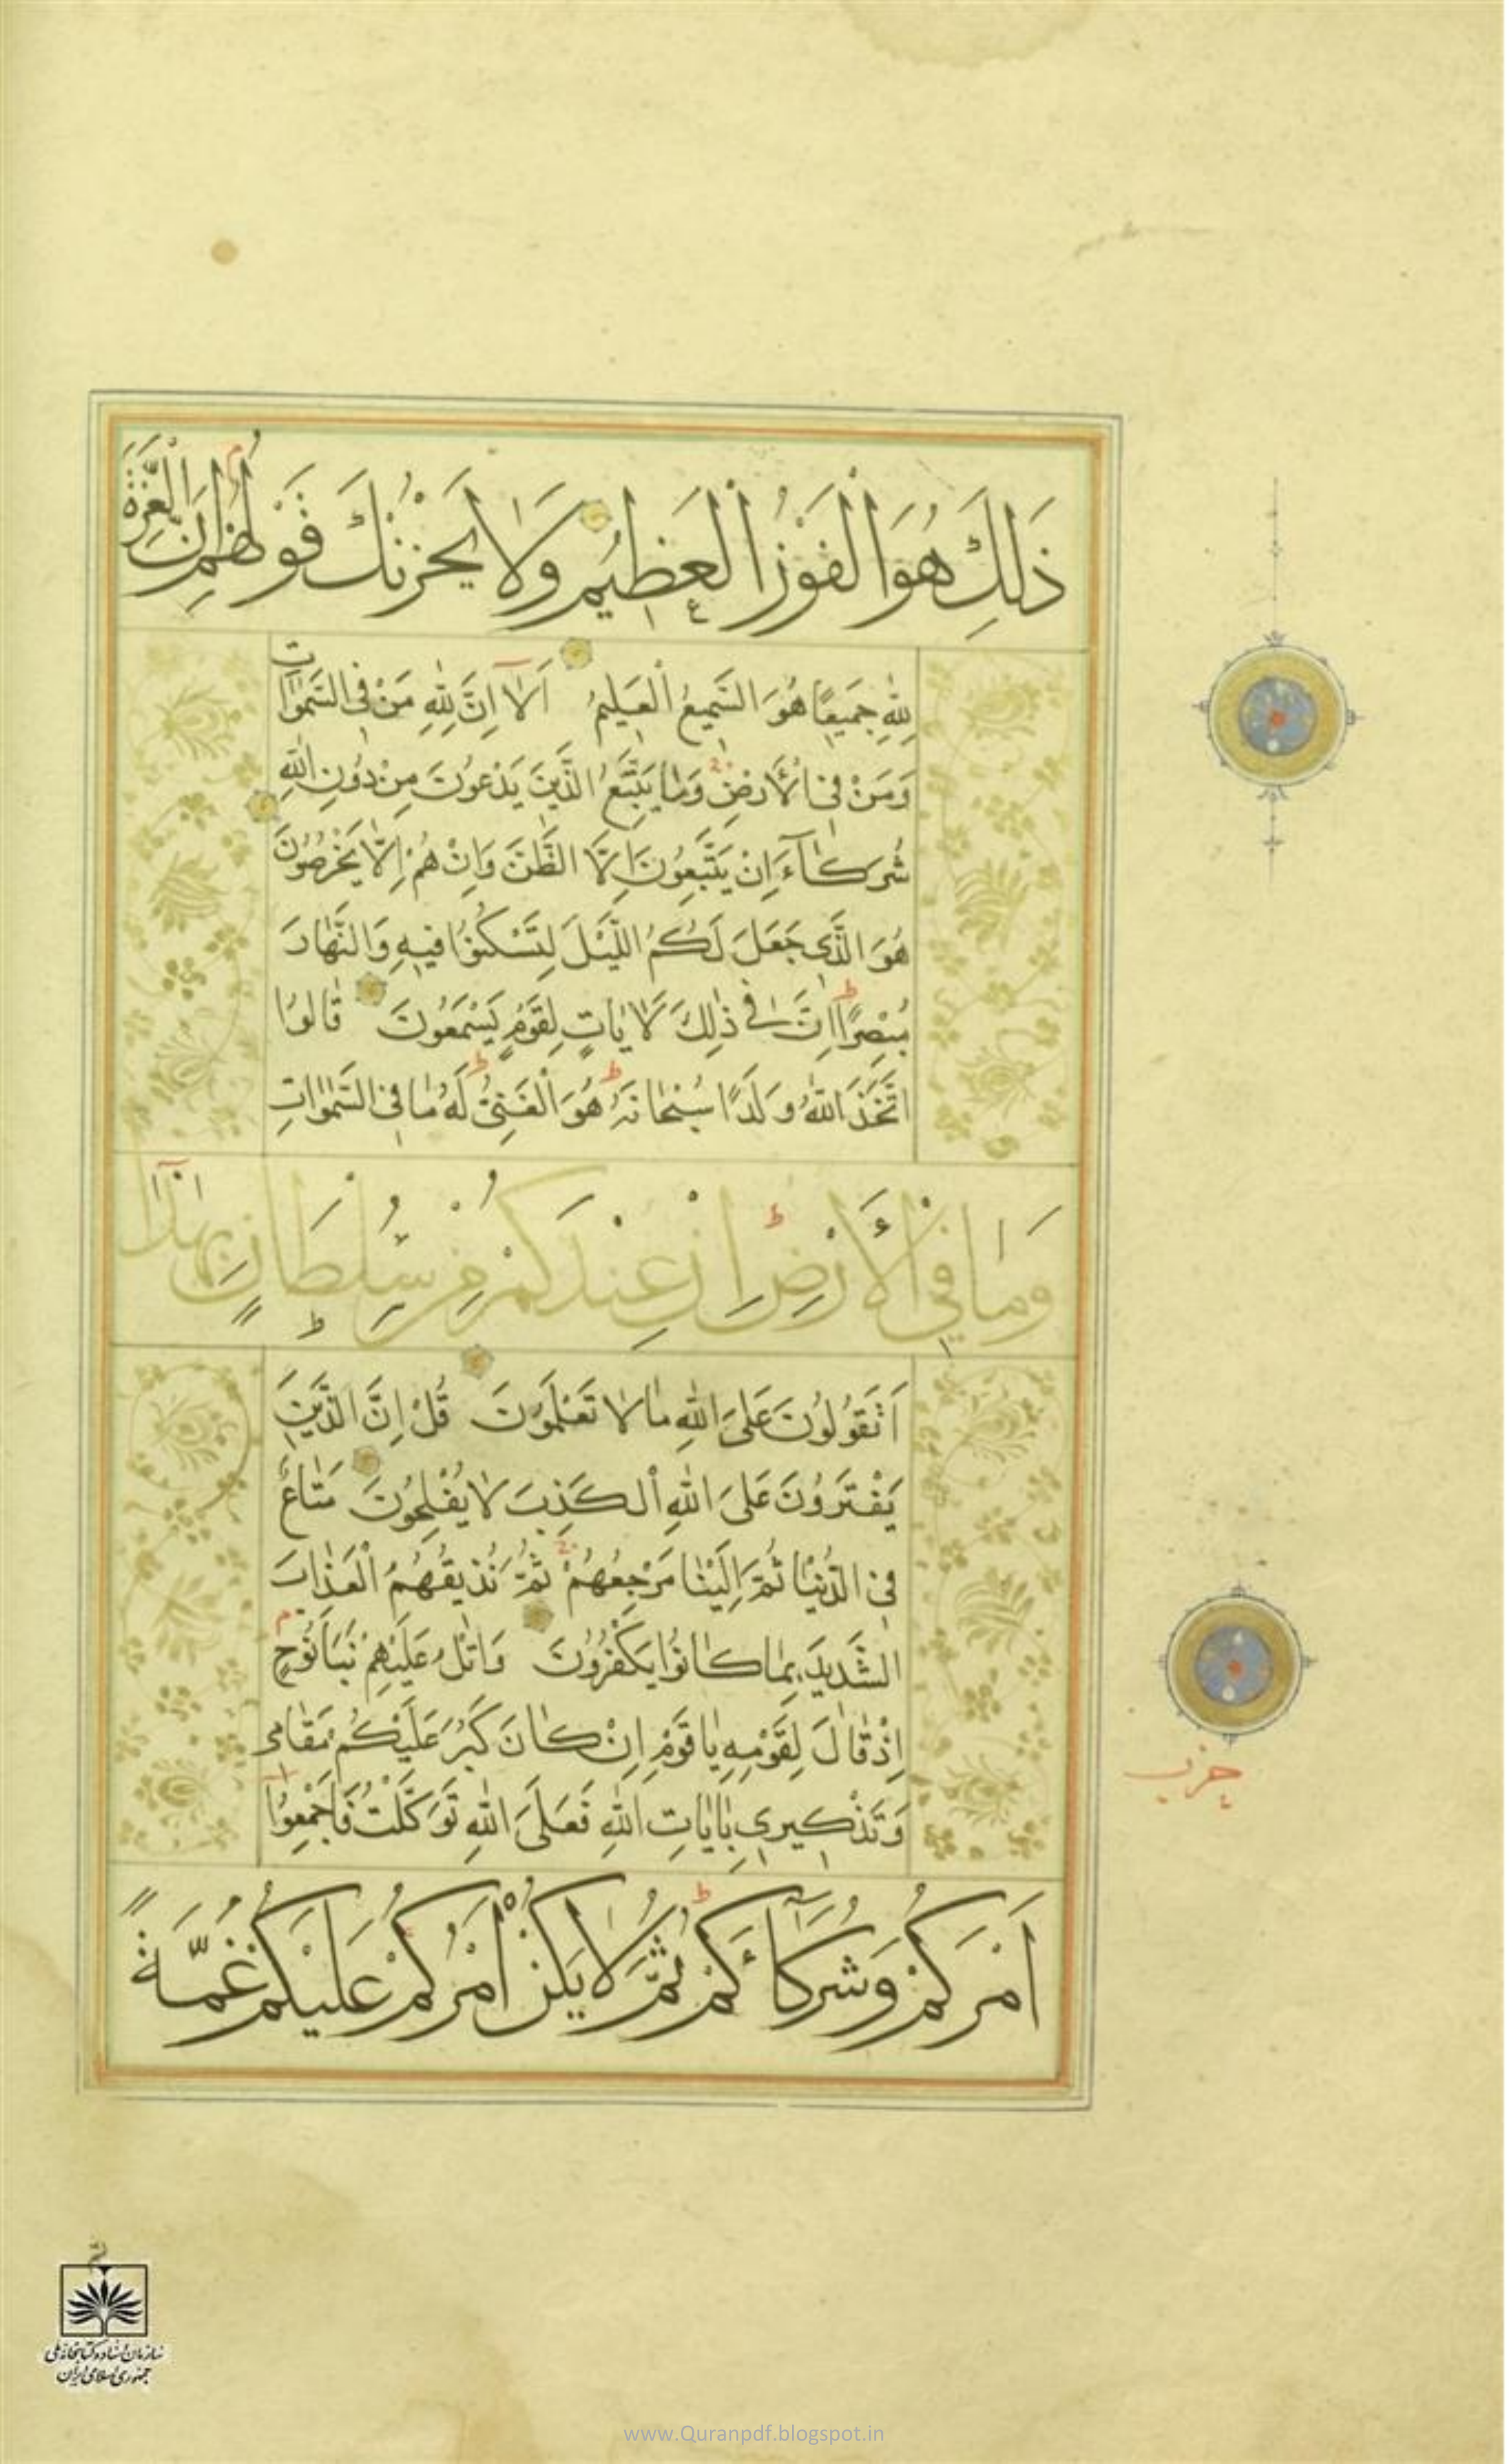 ذَلِكَ هُوَ الْفَوْزُ الْعَظِيمُ وَلَا يَحْزُنْكَ قَوْلُهُمْ إِنَّ الْعِزَّةَ
لِلّٰهِ جَمِيعًا هُوَ السَّمِيعُ الْعَلِيمُ اَلَا اِنَّ لِلّٰهِ مَنْ فِي السَّمٰوَاتِ
وَمَنْ فِي الْأَرْضِ وَمَا يَتَّبِعُ الَّذِينَ يَدْعُونَ مِنْ دُونِ اللّٰهِ
شُرَكَآءَ اِنْ يَتَّبِعُونَ اِلَّا الظَّنَّ وَاِنْ هُمْ اِلَّا يَخْرُصُونَ
هُوَ الَّذِي جَعَلَ لَكُمُ اللَّيْلَ لِتَسْكُنُوا فِيهِ وَالنَّهَارَ
مُبْصِرًا اِنَّ فِي ذٰلِكَ لَاٰيَاتٍ لِقَوْمٍ يَسْمَعُونَ قَالُوا
اتَّخَذَ اللّٰهُ وَلَدًا سُبْحَانَهُ هُوَ الْغَنِيُّ لَهُ مَا فِي السَّمٰوَاتِ
وَمَا فِي الْأَرْضِ اِنْ عِنْدَكُمْ مِنْ سُلْطَانٍ بِهٰذَا
اَتَقُولُونَ عَلَى اللّٰهِ مَا لَا تَعْلَمُونَ قُلْ اِنَّ الَّذِينَ
يَفْتَرُونَ عَلَى اللّٰهِ الْكَذِبَ لَا يُفْلِحُونَ مَتَاعٌ
فِي الدُّنْيَا ثُمَّ اِلَيْنَا مَرْجِعُهُمْ ثُمَّ نُذِيقُهُمُ الْعَذَابَ
الشَّدِيدَ بِمَا كَانُوا يَكْفُرُونَ وَاتْلُ عَلَيْهِمْ نَبَاَ نُوحٍ
اِذْ قَالَ لِقَوْمِهِ يَا قَوْمِ اِنْ كَانَ كَبُرَ عَلَيْكُمْ مَقَامِي
وَتَذْكِيرِي بِاٰيَاتِ اللّٰهِ فَعَلَى اللّٰهِ تَوَكَّلْتُ فَاَجْمِعُوا
اَمْرَكُمْ وَشُرَكَآءَكُمْ ثُمَّ لَا يَكُنْ اَمْرُكُمْ عَلَيْكُمْ غُمَّةً
حزب
سازمان اسناد و کتابخانه ملی
جمهوری اسلامی ایران
www.Quranpdf.blogspot.in